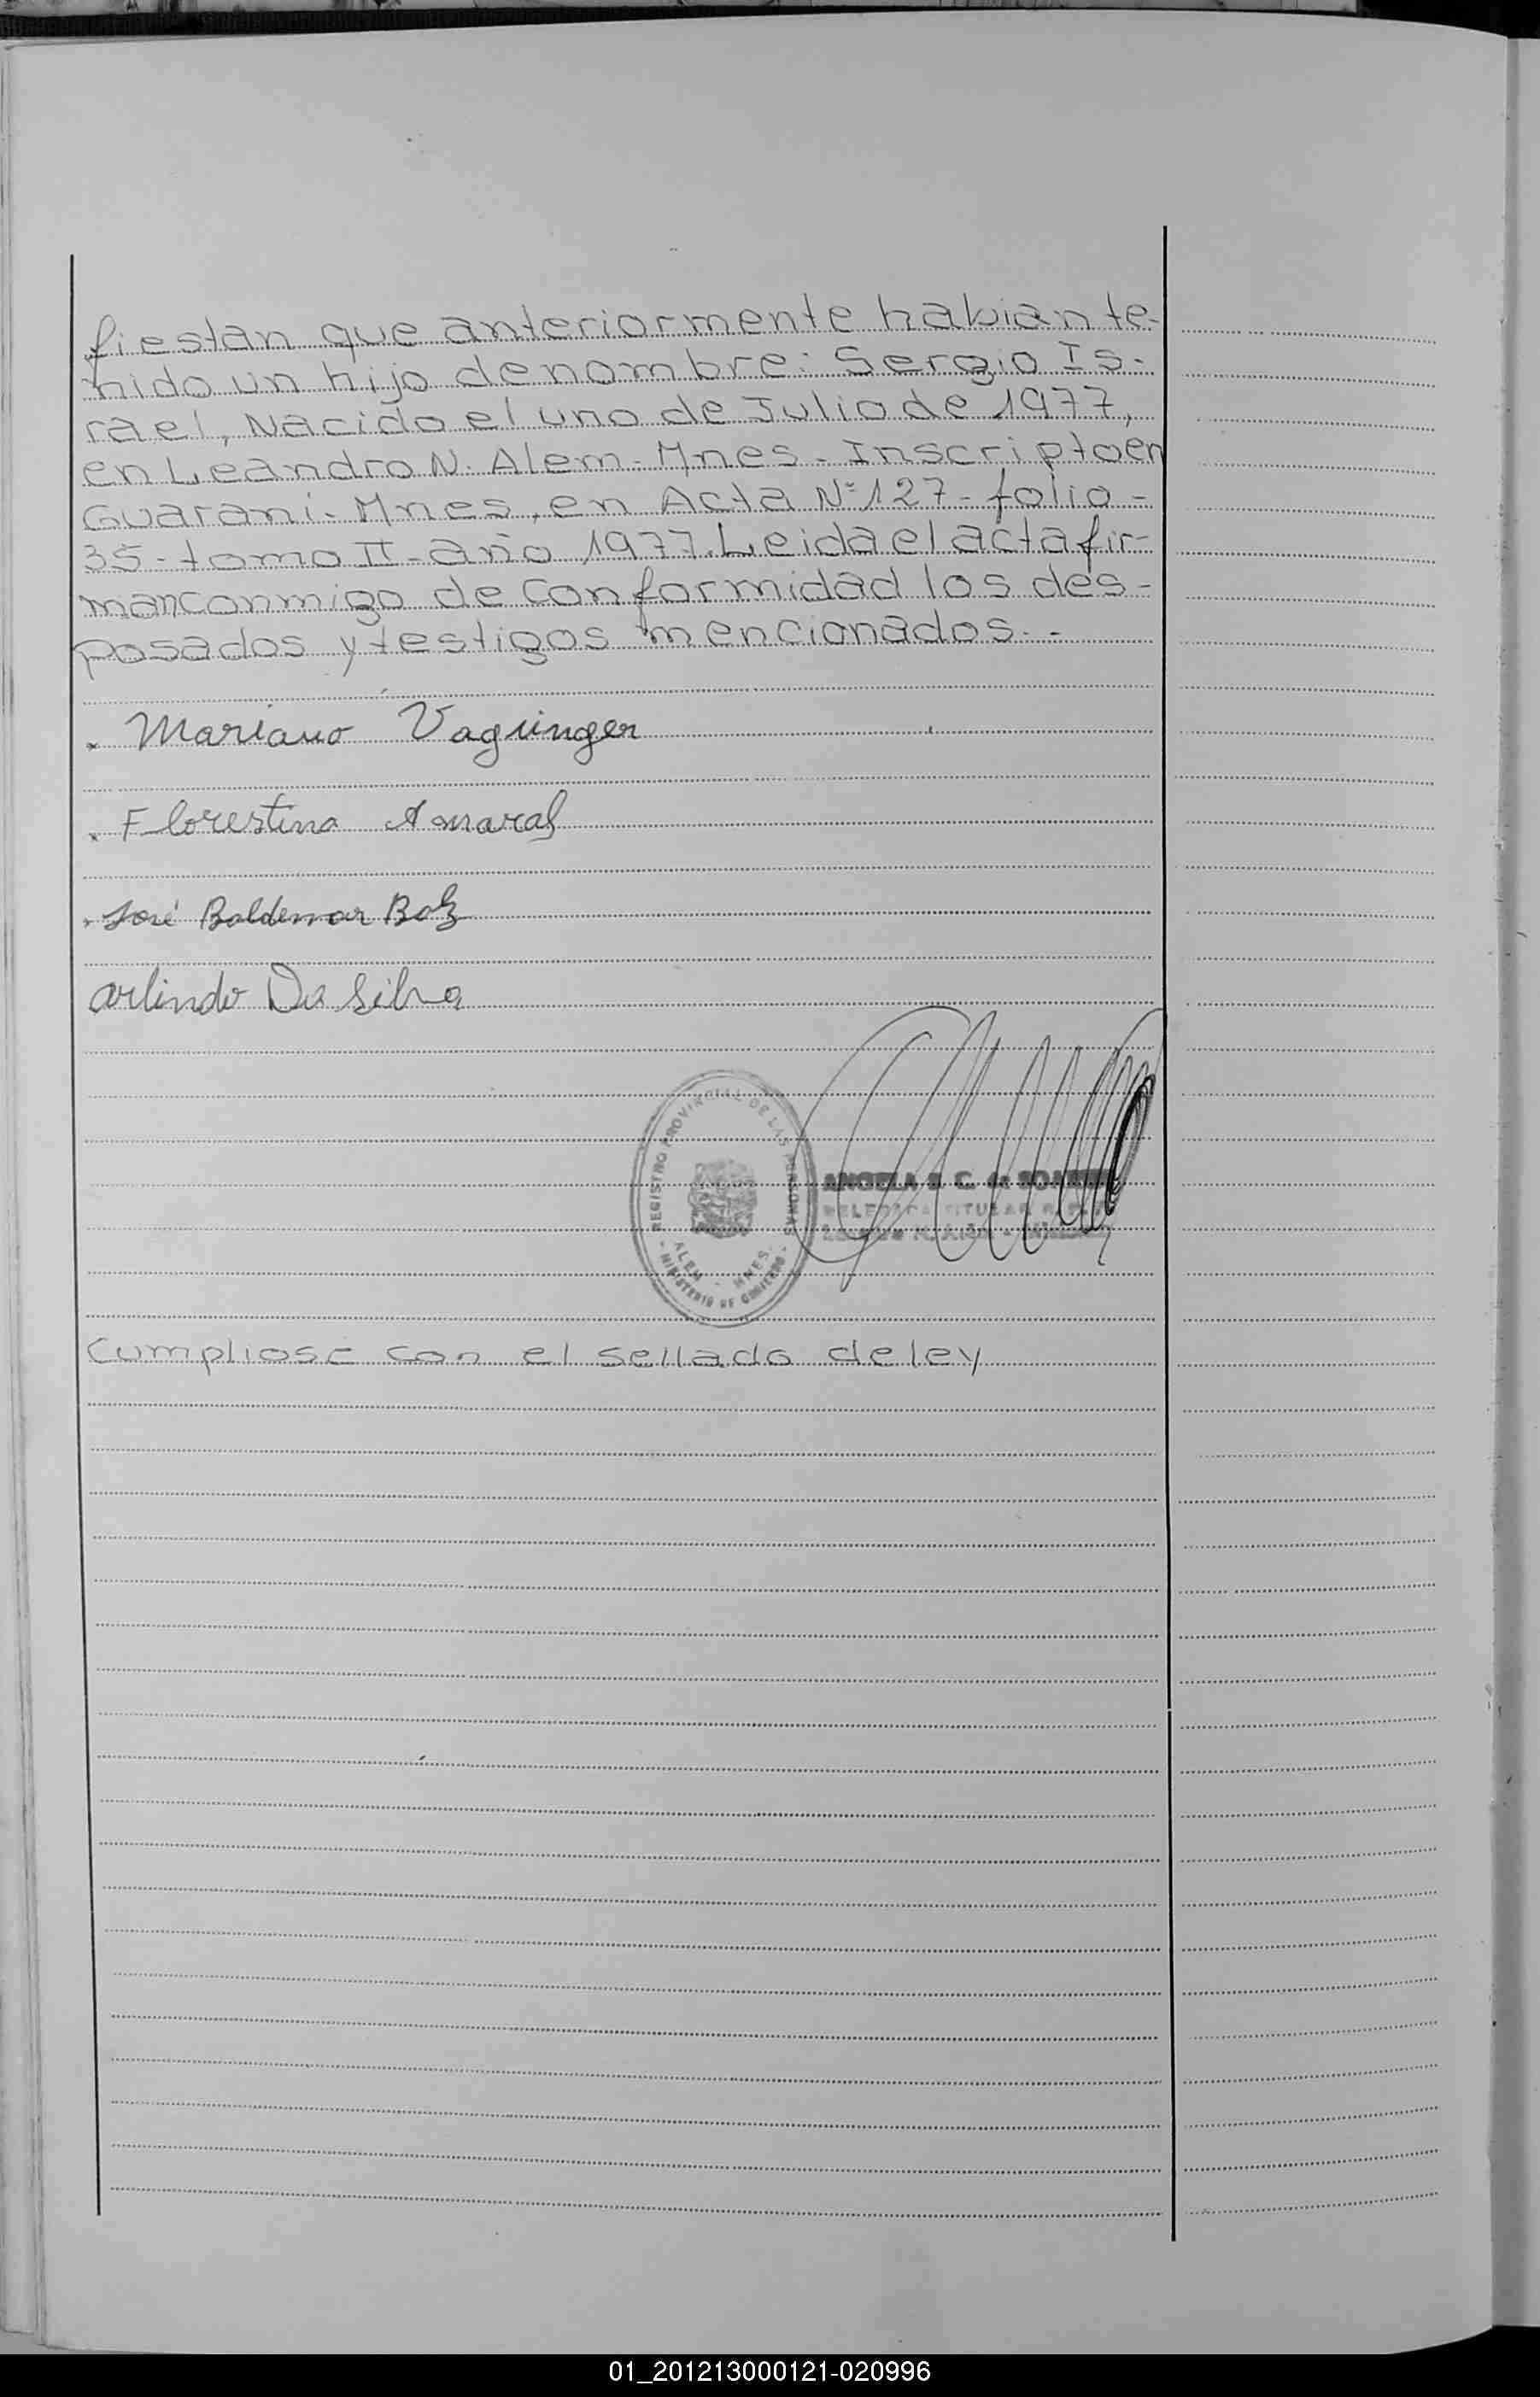 fiestan que anteriormente habian te-
nido un hijo de nombre: Sergio Is-
rael, Nacido el uno de Julio de 1977,
en Leandro N. Alem - Mnes - Inscripto en
Guarani - Mnes, en Acta Nº 127 - folio -
35 - tomo II - año 1977. Leida el acta fir-
man conmigo de conformidad los des-
posados y testigos mencionados. -
Mariano Vaguinger
Florestina Amaral
José Baldemar Bolz
Arlindo Da Silva
REGISTRO PROVINCIAL DE LAS PERSONAS
ALEM - MNES.
- MINISTERIO DE GOBIERNO -
ANGELA S. C. de SOAREZ
TITULAR
Cumpliose con el sellado de ley
01_201213000121-020996